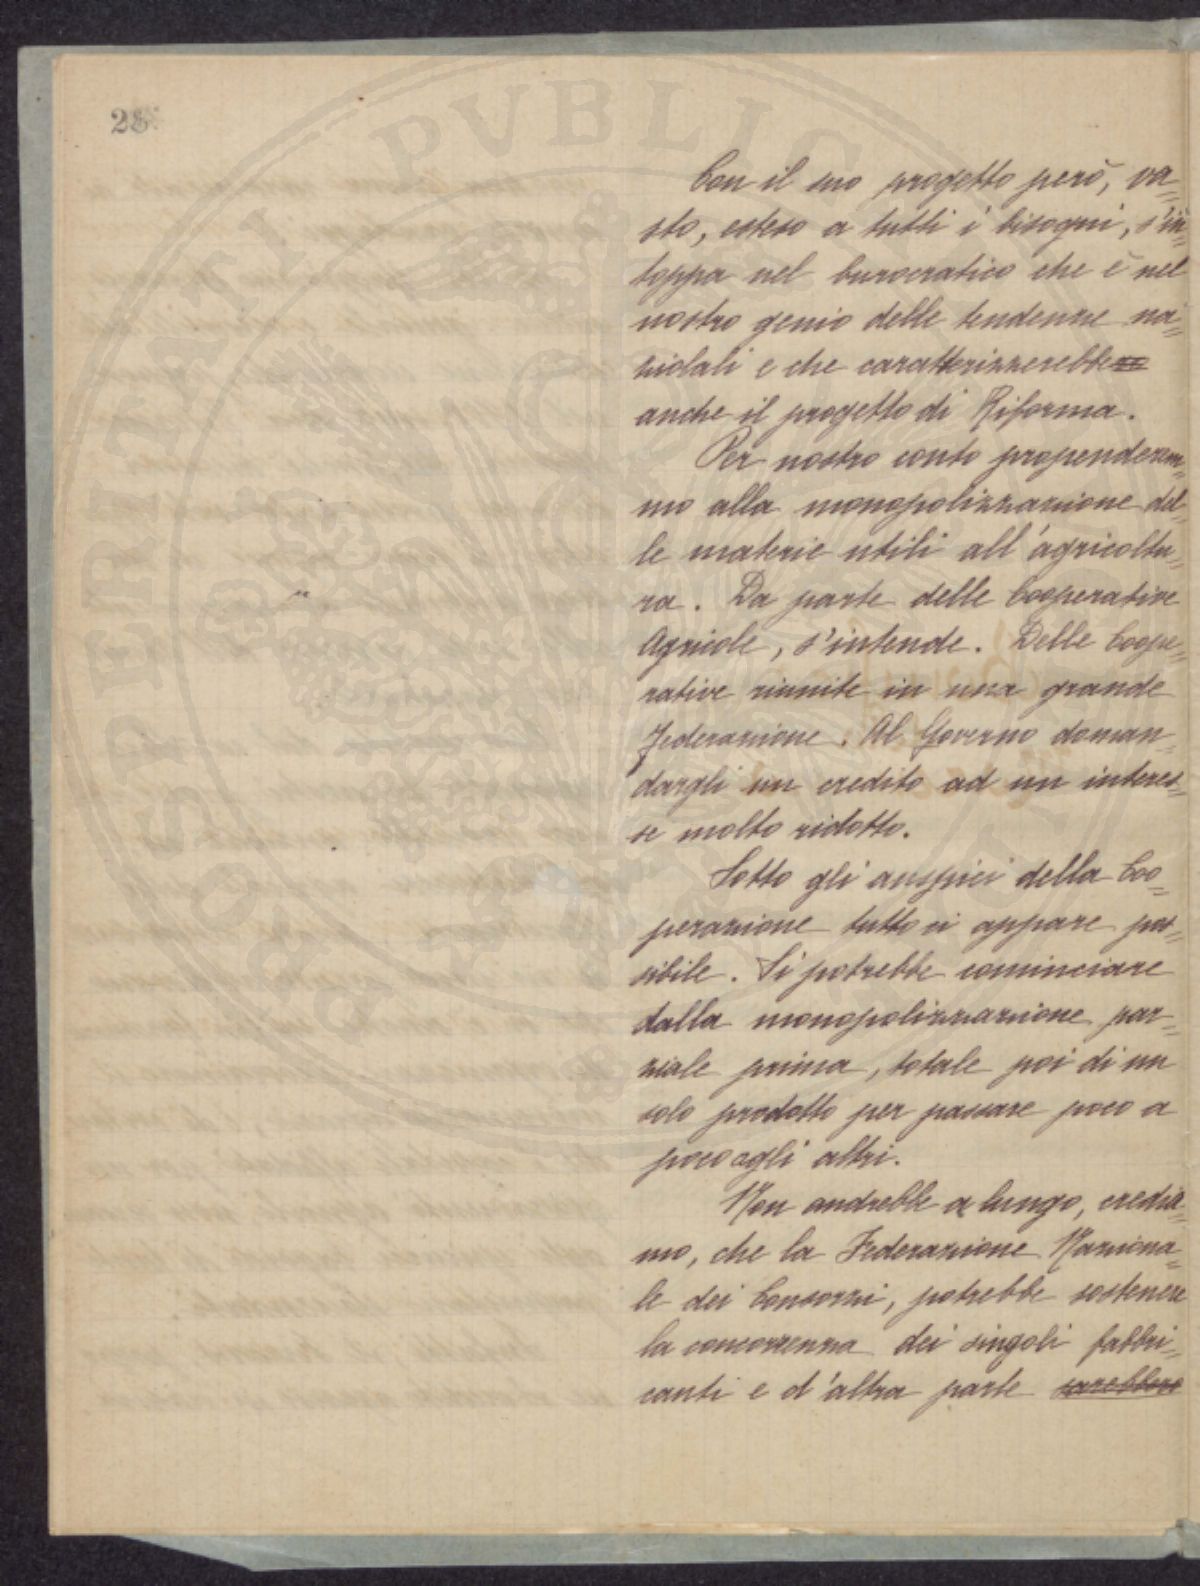 28
Con il suo progetto però, va=
sto, esteso a tutti i bisogni, s'in=
toppa nel burocratico che è nel
nostro genio delle tendenze na=
zionali e che caratterizzerebbero
anche il progetto di Riforma.
Per nostro conto propenderem=
mo alla monopolizzazione del=
le materie utili all'agricoltu=
ra. Da parte delle Cooperative
Agricole, s'intende. Delle Coope=
rative riunite in una grande
Federazione. Al Governo doman=
dargli un credito ad un interes=
se molto ridotto.
Sotto gli auspici della Coo=
perazione tutto ci appare pos=
sibile. Si potrebbe cominciare
dalla monopolizzazione par=
ziale prima, totale poi di un
solo prodotto per passare poco a
poco agli altri.
Non andrebbe a lungo, credia=
mo, che la Federazione Naziona=
le dei Consorzi, potrebbe sostenere
la concorrenza dei singoli fabbri=
canti e d'altra parte sarebbero
PROSPERITATI PVBLICAE